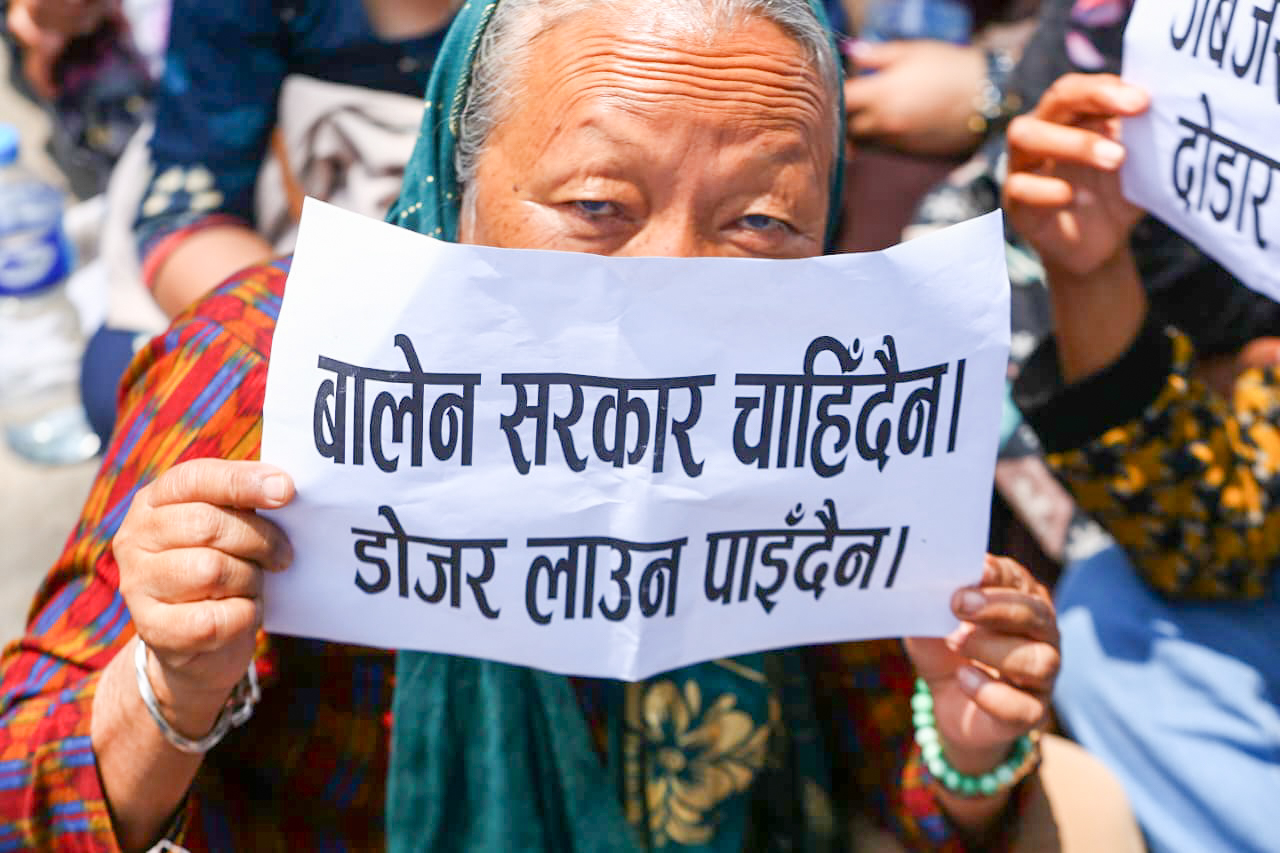 बालेन सरकार चाहिँदैन।
डोजर लाउन पाइँदैन।
दोडार